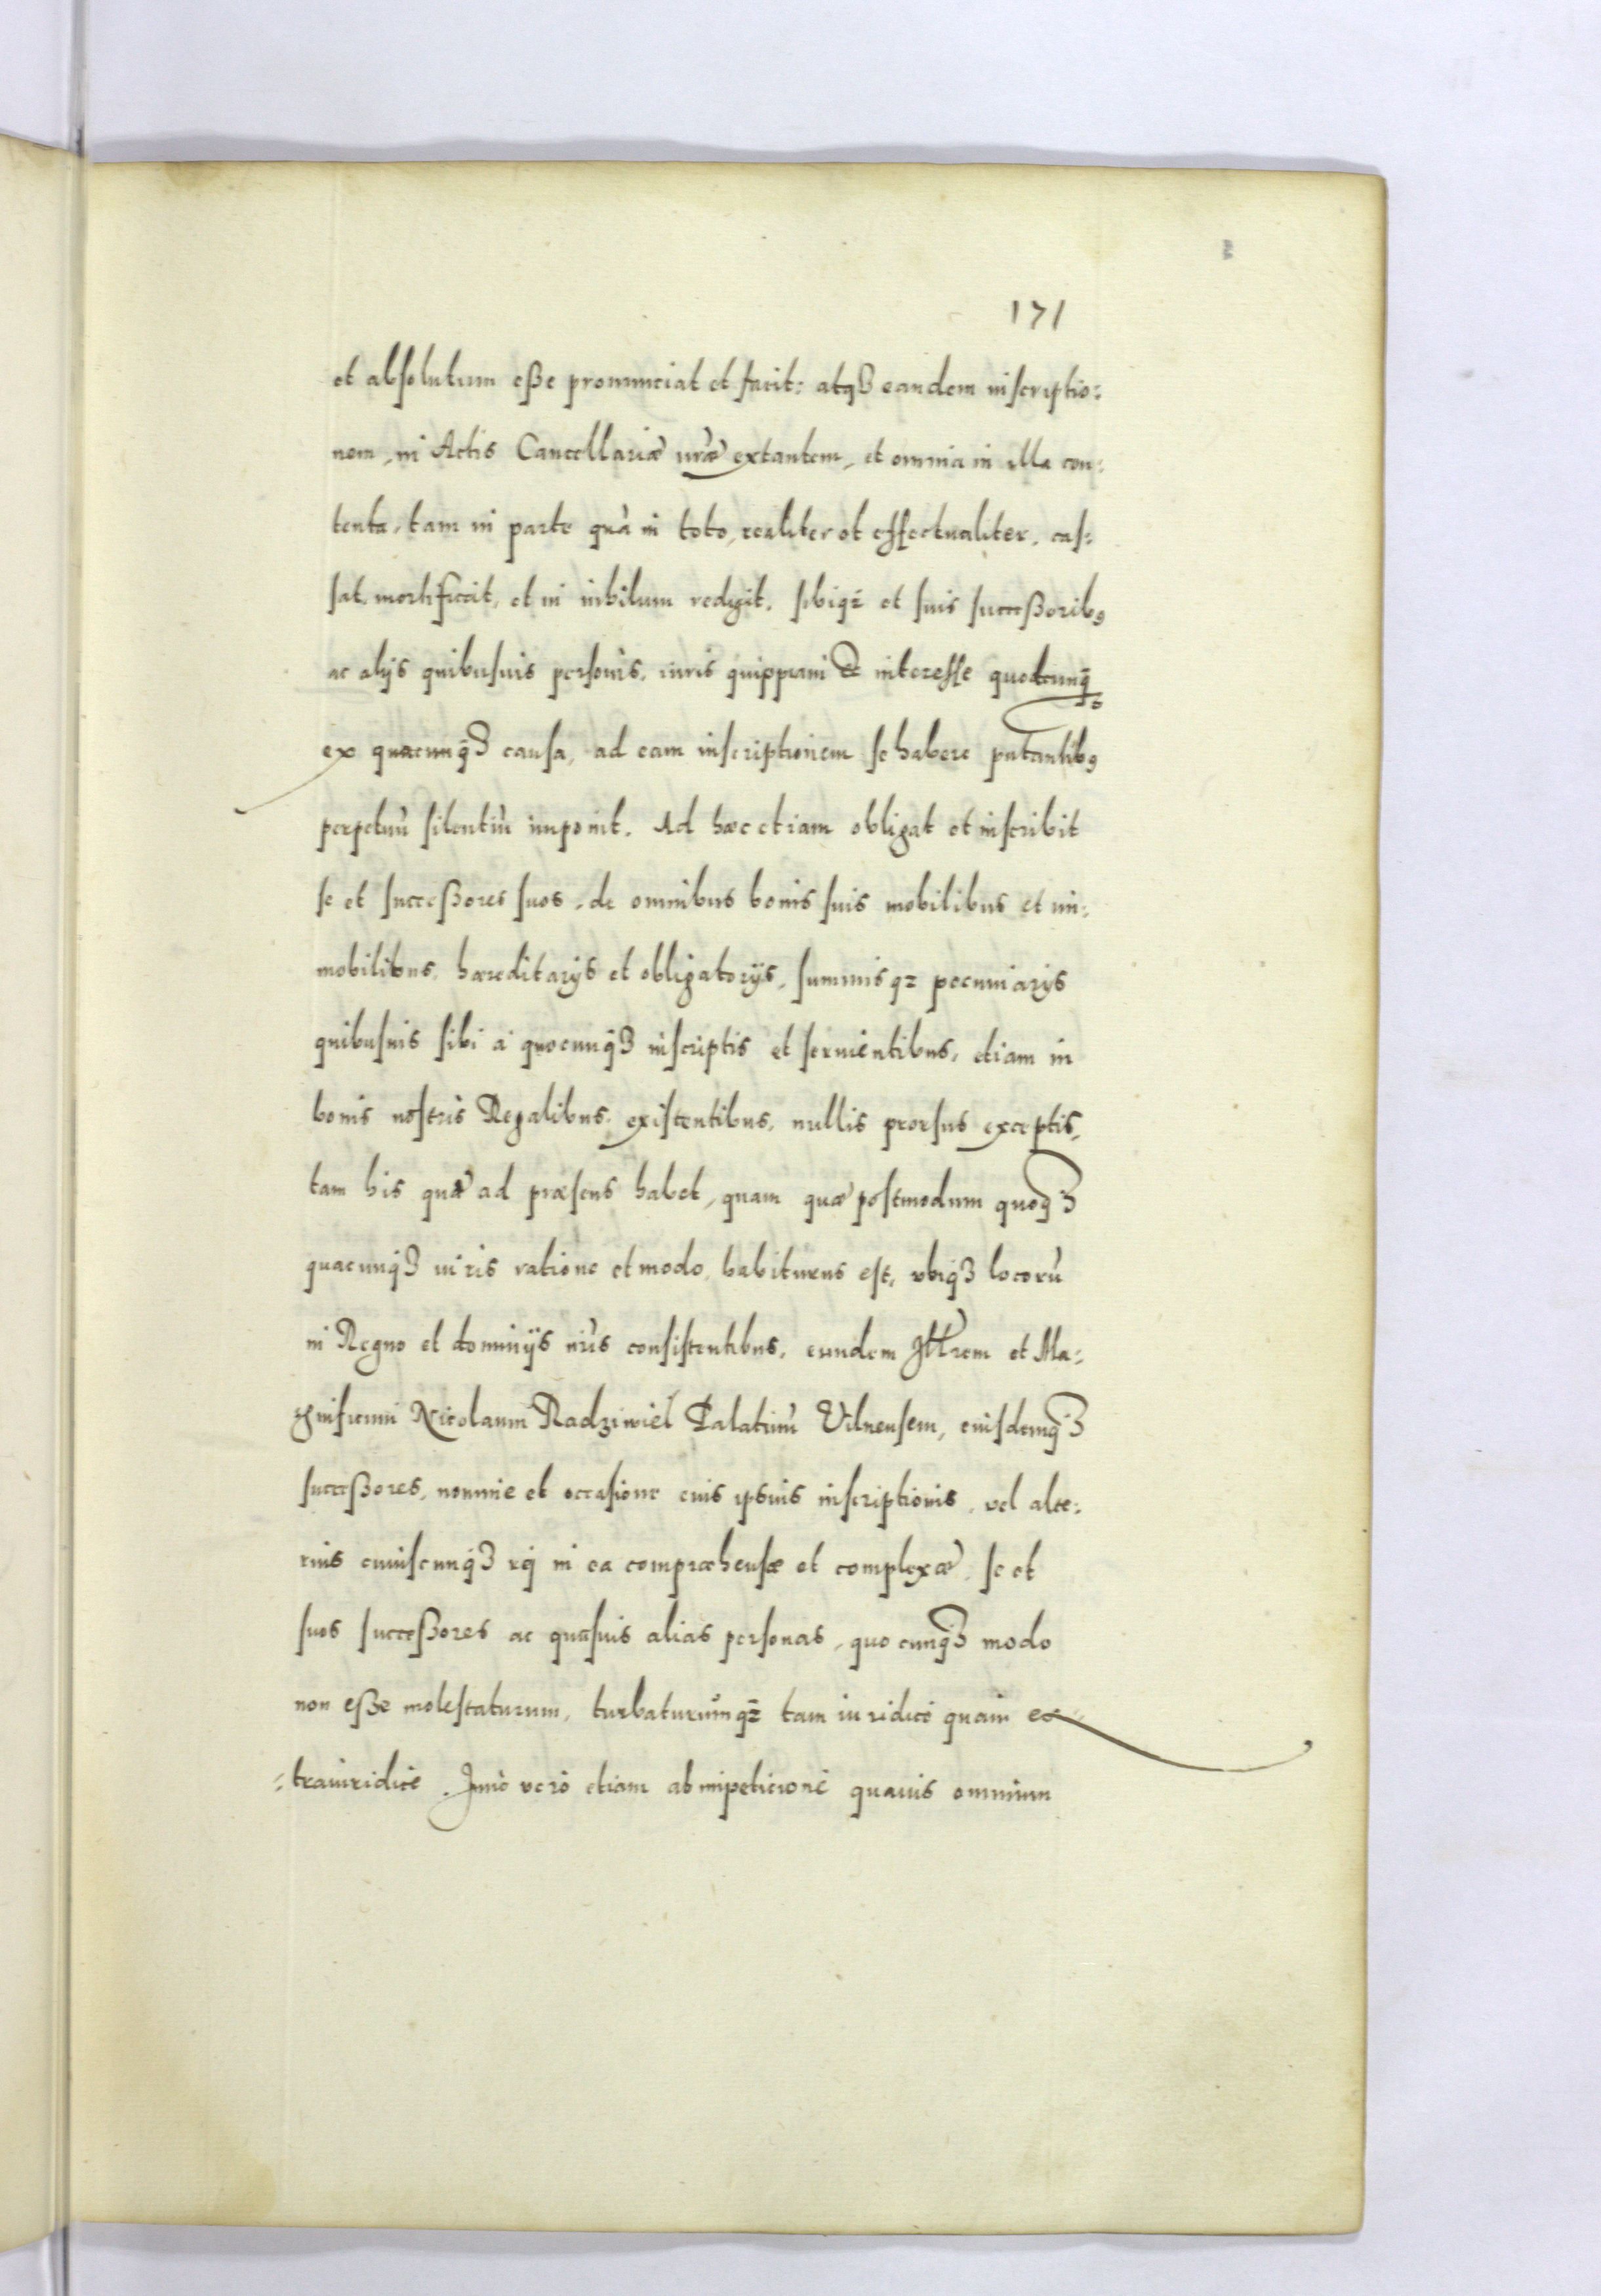 171
et absolutum eße pronunciat et facit: atqꝫ eandem inscriptio:
nem, in Actis Cancellariæ nr̃æ extantem, et omnia in illa con:
tenta, tam in parte quã in toto, realiter et effectualiter, cas:
sat, mortificat, et in nihilum redigit, sibiqꝫ et suis succeßoribꝰ
ac alijs quibusuis personis, iuris quippiam & interesse quodcunqꝫ
ex quacunqꝫ causa, ad eam inscriptionem se habere putantibꝰ
perpetuũ silentiũ imponit. Ad hæc etiam obligat et inscribit
se et succeßores suos, de omnibus bonis suis mobilibus et im:
mobilibus, hæreditarijs et obligatorijs, summisqꝫ pecuniarijs
quibusuis sibi à quocunqꝫ inscriptis et seruientibus, etiam in
bonis nostris Regalibus existentibus, nullis prorsus exceptis,
tam his quæ ad præsens habet, quam quæ postmodum quoqꝫ
quacunqꝫ iuris ratione et modo, habiturus est, vbiqꝫ locorũ
in Regno et dominijs nr̃is consistentibus, eundem Illr̃em et Ma:
gnificum Nicolaum Radziwiel Palatinũ Vilnensem, eiusdemqꝫ
succeßores, nomine et occasione eius ipsius inscriptionis, vel alte:
rius cuiuscunqꝫ rei in ea compræhensæ et complexæ, se et
suos succeßores ac quasuis alias personas, quocunqꝫ modo
non eße molestaturum, turbaturumqꝫ tam iuridicè quam ex
:traiuridicè. Imò verò etiam ab impeticione quauis omnium